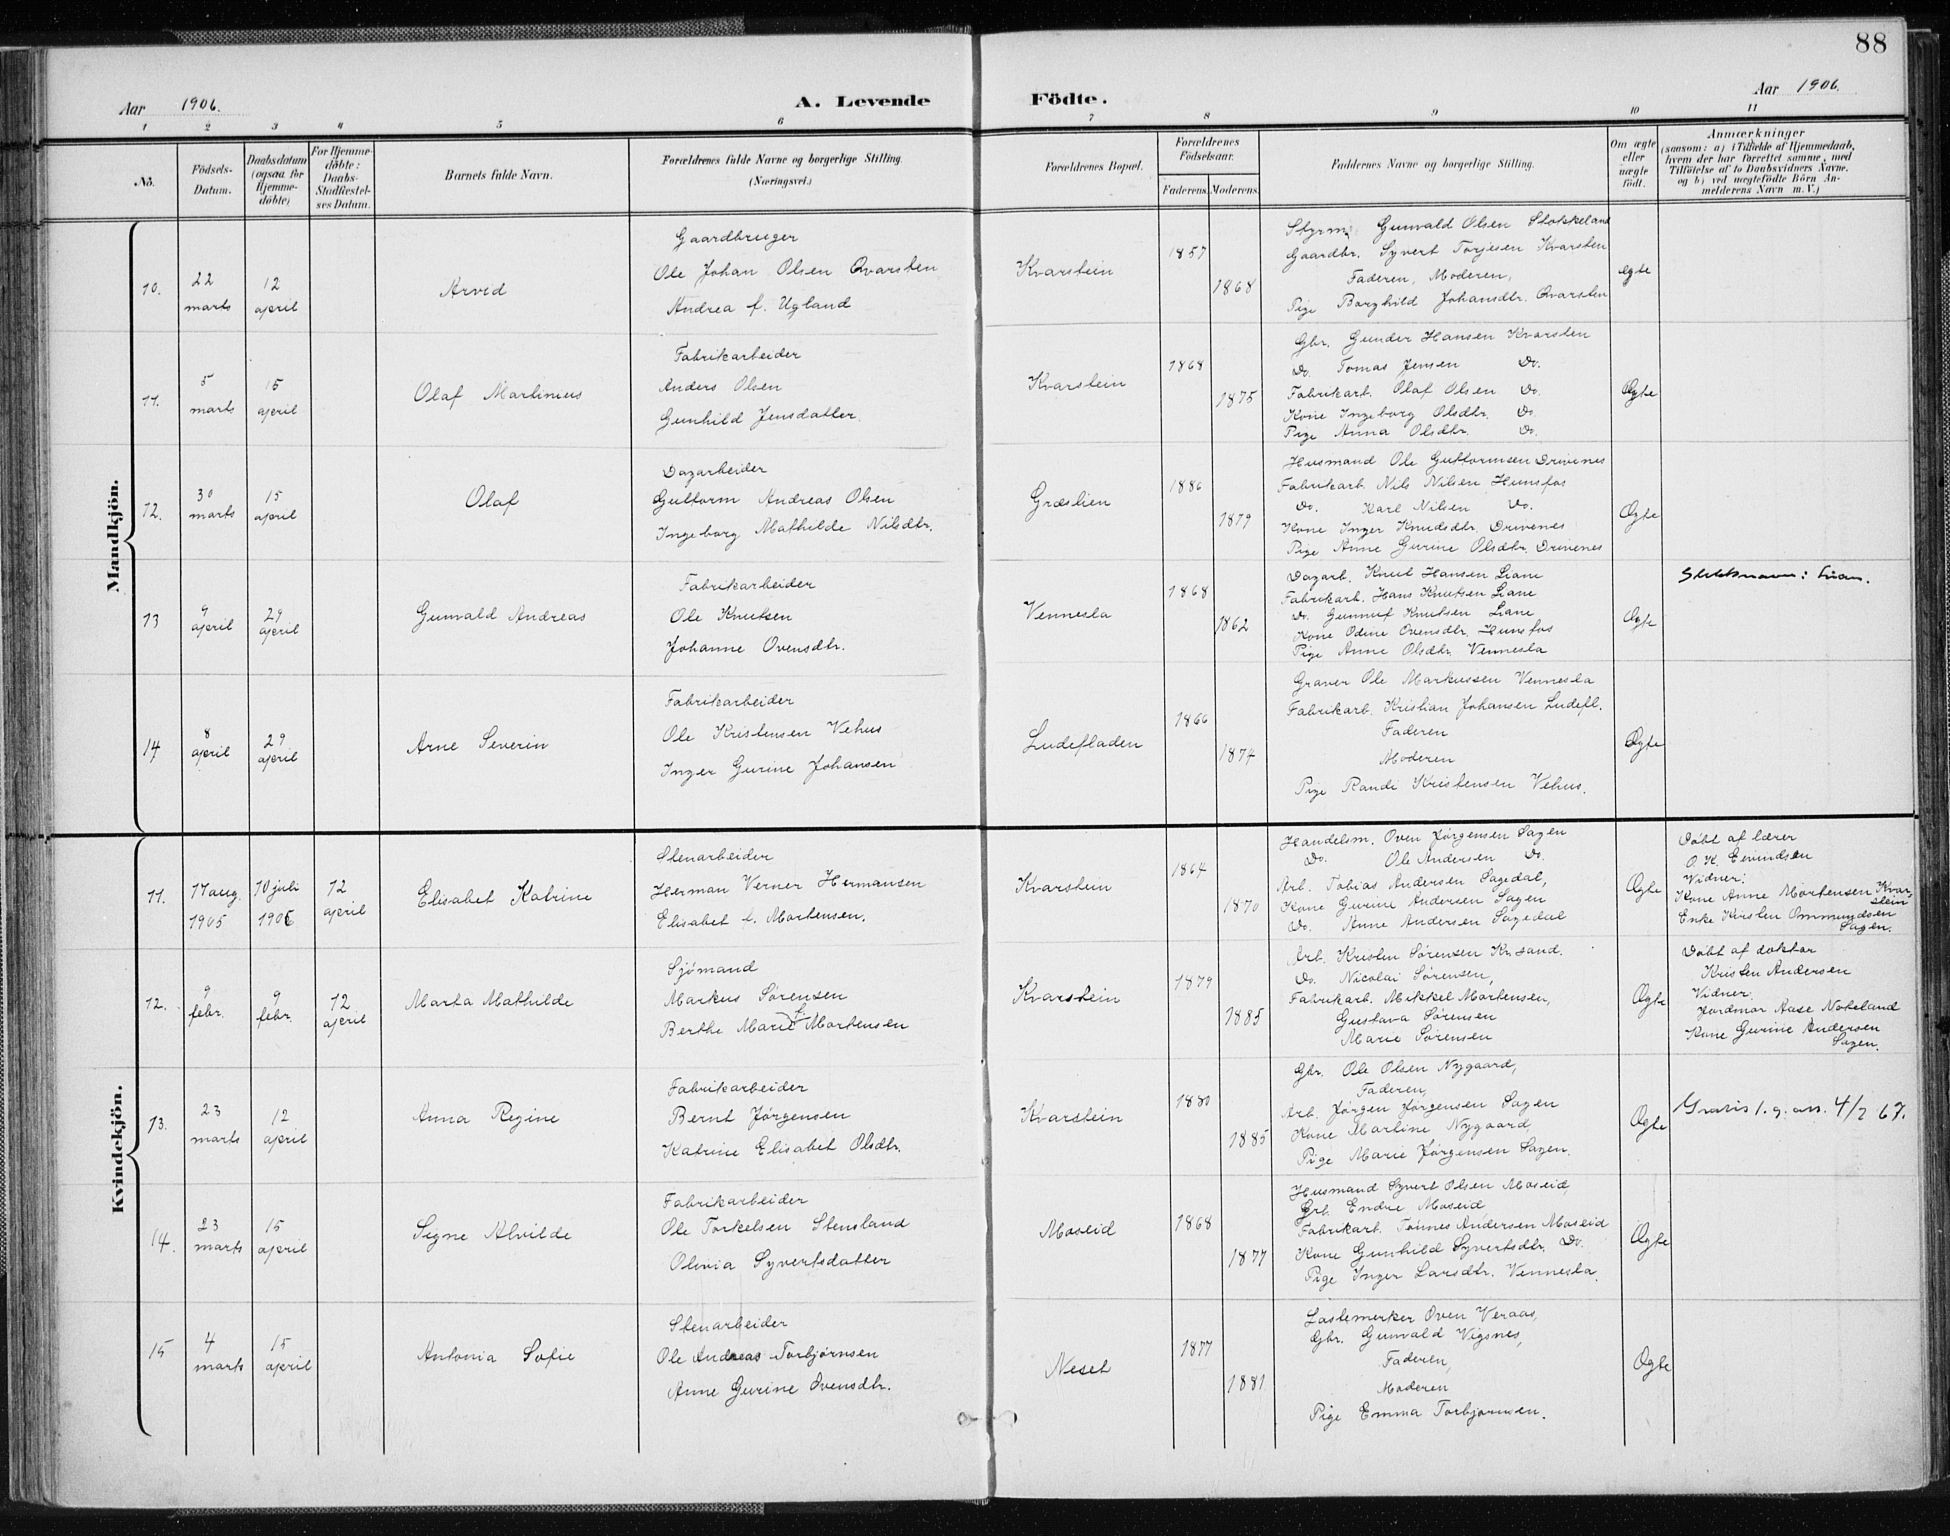 88
Aar 1906.
A. Levende Födte.
Aar 1906.
1 2 3 4 5 6 7 8 9 10 11
No.
Födsels-Datum.
Daabsdatum (ogsaa for Hjemme-döbte)
For Hjemme-döbte: Daabs-Stadfestel-ses Datum.
Barnets fulde Navn.
Forældrenes fulde Navne og borgerlige Stilling. (Næringsvei.)
Forældrenes Bopæl.
Forældrenes Födselsaar.
Faderens. Moderens.
Faddernes Navne og borgerlige Stilling.
Om ægte eller uægte födt.
Anmærkninger
(saasom: a) i Tilfælde af Hjemmedaab, hvem der har forrettet samme, med Tilföielse af to Daabsvidners Navne. og b) ved uægtefödte Börn An-melderens Navn m. V.)
Mandkjön.
10. 22 marts 12 april Arvid
Gaardbruger
Ole Johan Olsen Qvarsten
Andrea f. Ugland
Kvarstein 1857 1868
Styrm. Gunvald Olsen Stokkeland
Gaardbr. Syvert Torjesen Kvarsten
Faderen, Moderen,
Pige Borghild Johansdtr. Qvarsten
Ægte
11. 5 marts 15 april Olaf Martinius
Fabrikarbeider
Anders Olsen
Gunhild Jensdatter.
Kvarstein 1868 1875
Gbr. Gunder Hansen Kvarsten
Do. Tomas Jensen Do.
Fabrikarb. Olaf Olsen Do.
Kone Ingeborg Olsdtr. Do.
Pige Anna Olsdtr. Do.
Ægte
12. 30 marts 15 april Olaf
Dagarbeider
Guttorm Andreas Olsen
Ingeborg Mathilde Nilsdtr.
Græslien 1886 1879
Husmand Ole Guttormsen Drivenes
Fabrikarb. Nils Nilsen Hunsfos
Do. Karl Nilsen Do.
Kone Inger Knudsdtr. Drivenes
Pige Anne Gurine Olsdtr. Drivenes
Ægte
13 9 april 29 april Gunvald Andreas
Fabrikarbeider
Ole Knutsen
Johanne Ovensdtr.
Vennesla 1868 1862
Dagarb. Knut Hansen Liane
Fabrikarb. Hans Knutsen Liane
Do. Gunnuf Knutsen Liane
Kone Odine Ovensdtr. Hunsfos
Pige Anne Olsdtr. Vennesla
Ægte
Slektsnavn: Lian.
14 8 april 29 april Arne Severin
Fabrikarbeider
Ole Kristensen Vehus
Inger Gurine Johansen
Ludefladen 1866 1874
Graver Ole Markussen Vennesla
Fabrikarb. Kristian Johansen Ludefl.
Faderen
Moderen
Pige Randi Kristensen Vehus.
Ægte
Kvindekjön.
11. 17 aug. 1905 10 juli 1905 12 april Elisabet Katrine
Stenarbeider
Herman Verner Hermansen
Elisabet f. Mortensen.
Kvarstein 1864 1870
Handelsm. Oven Jørgensen Sagen
Do. Ole Andersen Do.
Arb. Tobias Andersen Sagedal,
Kone Gurine Andersen Sagen
Do. Anne Andersen Sagedal
Ægte
Døbt af lærer
O. K. Eivindsen
Vidner:
Kone Anne Mortensen Kvarstein
Enke Kirsten Ommundsen Sagen.
12. 9 febr. 9 febr. 12 april Marta Mathilde
Sjømand
Markus Sørensen
Berthe Marie f. Mortensen
Kvarstein 1879 1885
Arb. Kristen Sørensen Kr.sand.
Do. Nicolai Sørensen,
Fabrikarb. Mikkel Mortensen,
Gustava Sørensen
Marie Sørensen
Ægte
Døbt af doktor
Kristen Andersen
Vidner:
Jordmor Aase Nøkeland
Kone Gurine Andersen Sagen.
13. 23 marts 12 april Anna Regine
Fabrikarbeider
Bernt Jørgensen
Katrine Elisabet Olsdtr.
Kvarstein 1880 1885
Gbr. Ole Olsen Nygaard,
Faderen,
Arb. Jørgen Jørgensen Sagen
Kone Martine Nygaard,
Pige Marie Jørgensen Sagen.
Ægte
Gratis 4/2 67.
14. 23 marts 15 april Signe Alvilde
Fabrikarbeider
Ole Torkelsen Stensland
Olevia Syvertsdatter
Moseid 1868 1877
Husmand Syvert Olsen Moseid,
Grb. Endre Moseid,
Fabrikarb. Tønnes Andersen Moseid
Kone Gunhild Syvertsdtr. Do.
Pige Inger Larsdtr. Vennesla.
Ægte
15 4 marts 15 april Antonia Sofie
Stenarbeider
Ole Andreas Torbjørnsen
Anne Gurine Ovensdtr.
Neset 1877 1881
Lastemerker Oven Veraas,
Gbr. Gunvald Vigsnes,
Faderen,
Moderen
Pige Emma Torbjørnsen.
Ægte